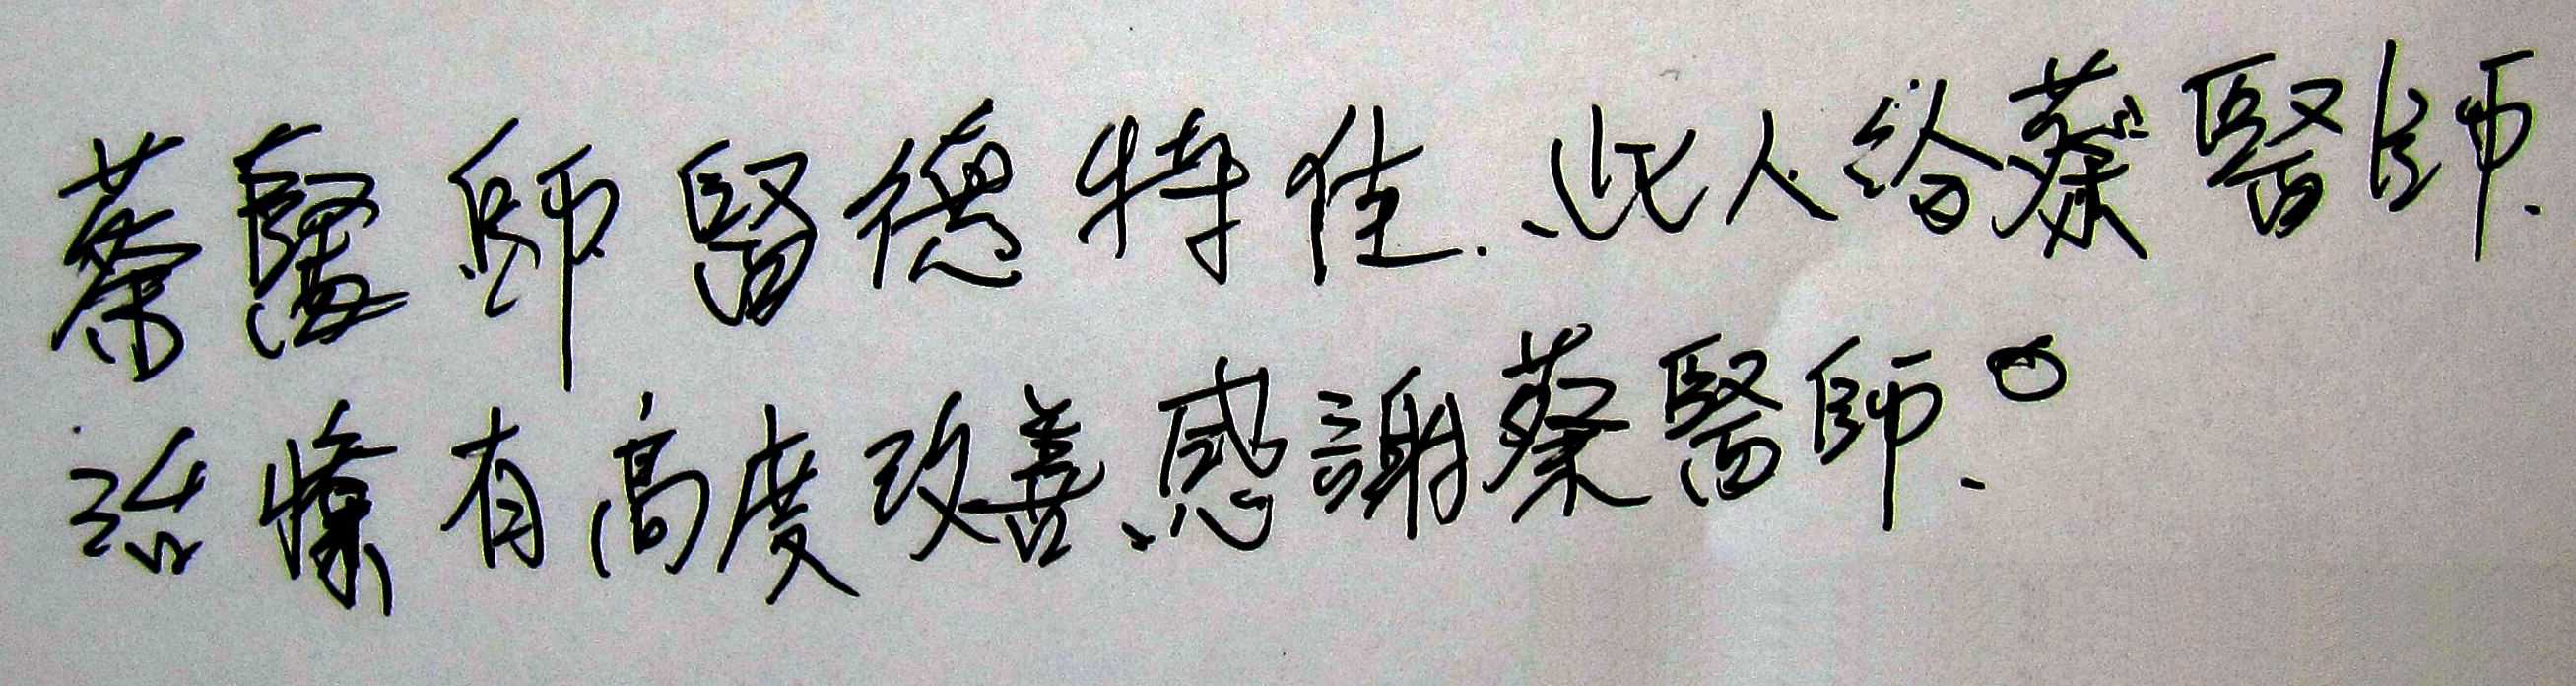 蔡醫師醫德特佳.此人給蔡醫師.
治療有高度改善、感謝蔡醫師。